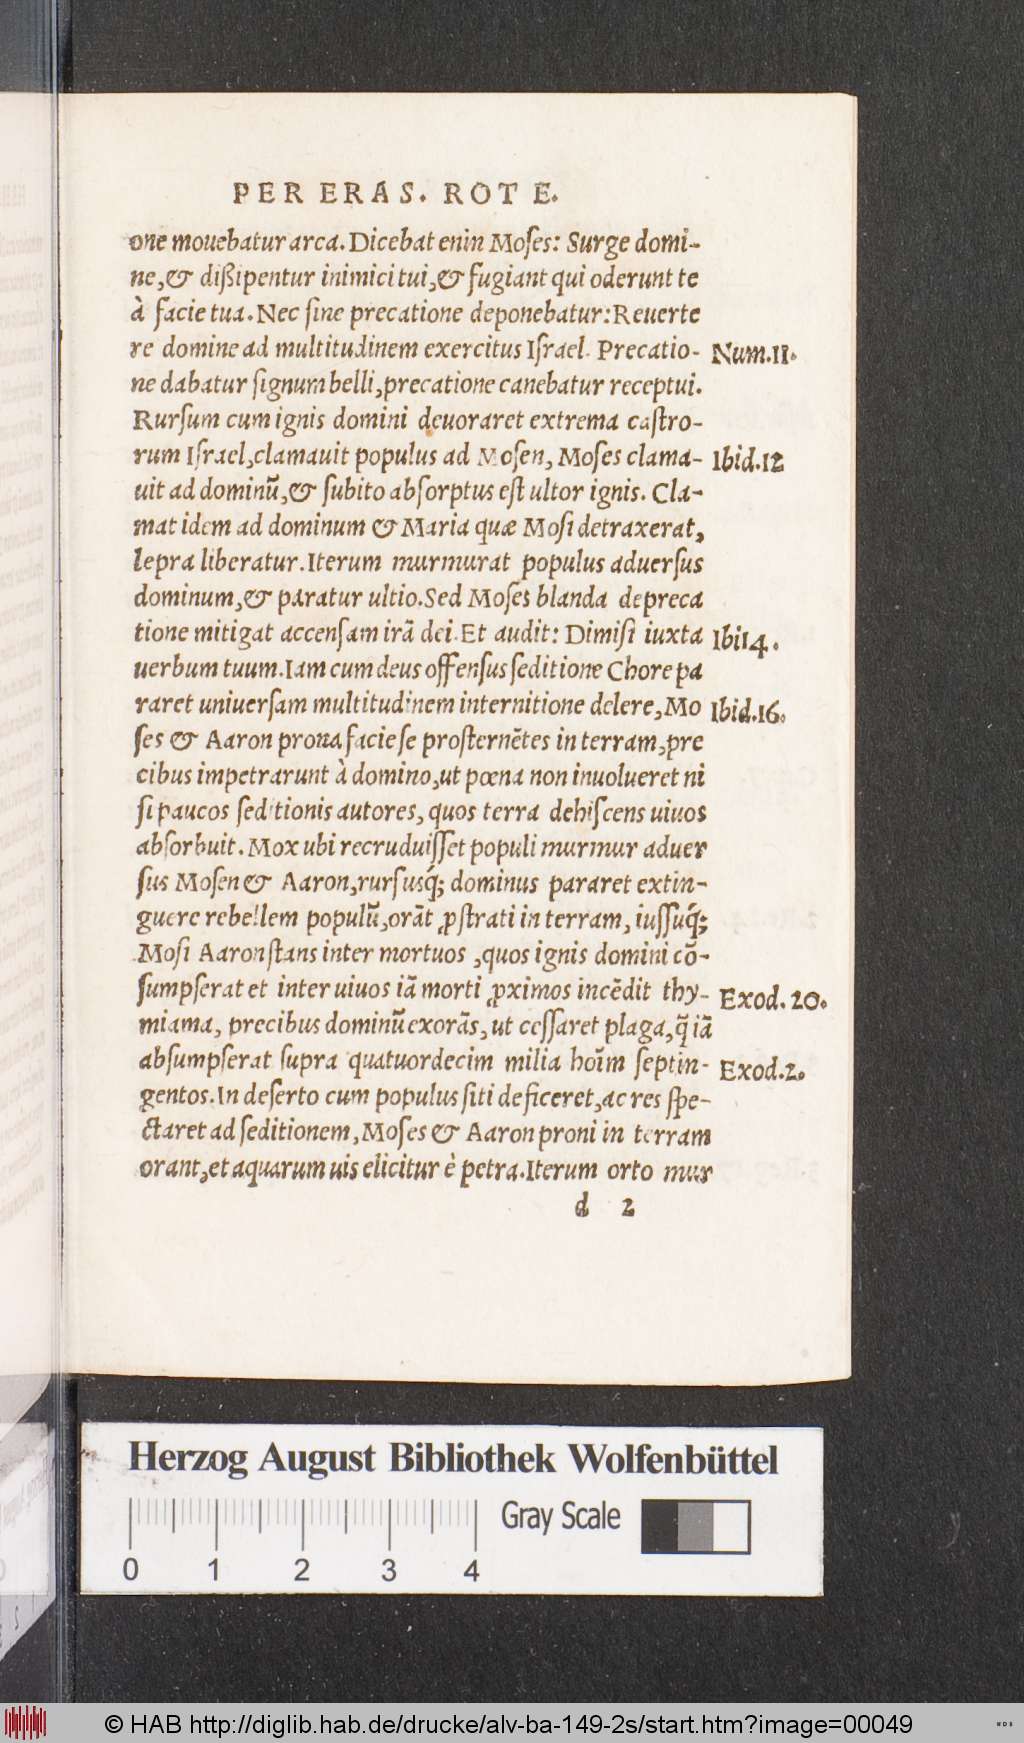 PER ERAS. ROTE.
one mouebatur arca. Dicebat enin Moſes: Surge domi-
ne, & dißipentur inimici tui, & fugiant qui oderunt te
à facie tua. Nec ſine precatione deponebatur: Reuerte
re domine ad multitudinem exercitus Iſrael. Precatio-
Num. 11.
ne dabatur ſignum belli, precatione canebatur receptui.
Rurſum cum ignis domini deuoraret extrema caſtro-
rum Iſrael, clamauit populus ad Moſen, Moſes clama-
Ibid. 12
uit ad dominũ, & ſubito abſorptus eſt ultor ignis. Cla-
mat idem ad dominum & Maria quæ Moſi detraxerat,
lepra liberatur. Iterum murmurat populus aduerſus
dominum, & paratur ultio. Sed Moſes blanda depreca
tione mitigat accenſam irã dei. Et audit: Dimiſi iuxta
Ibi 14.
uerbum tuum. Iam cum deus offenſus ſeditione Chore pa
raret uniuerſam multitudinem internitione delere, Mo
Ibid. 16.
ſes & Aaron prona facie ſe proſternẽtes in terram, pre
cibus impetrarunt à domino, ut pœna non inuolueret ni
ſi paucos ſeditionis autores, quos terra dehiſcens uiuos
abſorbuit. Mox ubi recruduiſſet populi murmur aduer
ſus Moſen & Aaron, rurſusq́; dominus pararet extin-
guere rebellem populũ, orãt ꝓſtrati in terram, iuſſuq́;
Moſi Aaron ſtans inter mortuos , quos ignis domini cõ-
ſumpſerat et inter uiuos iã morti ꝓximos incẽdit thy-
Exod. 20.
miama, precibus dominũ exorãs, ut ceſſaret plaga, q̃ iã
abſumpſerat ſupra quatuordecim milia hoĩm ſeptin-
Exod. 2.
gentos. In deſerto cum populus ſiti deficeret, ac res ſpe-
ctaret ad ſeditionem, Moſes & Aaron proni in terram
orant, et aquarum uis elicitur è petra. Iterum orto mur
d 2
Herzog August Bibliothek Wolfenbüttel
Gray Scale
0 1 2 3 4
© HAB http://diglib.hab.de/drucke/alv-ba-149-2s/start.htm?image=00049